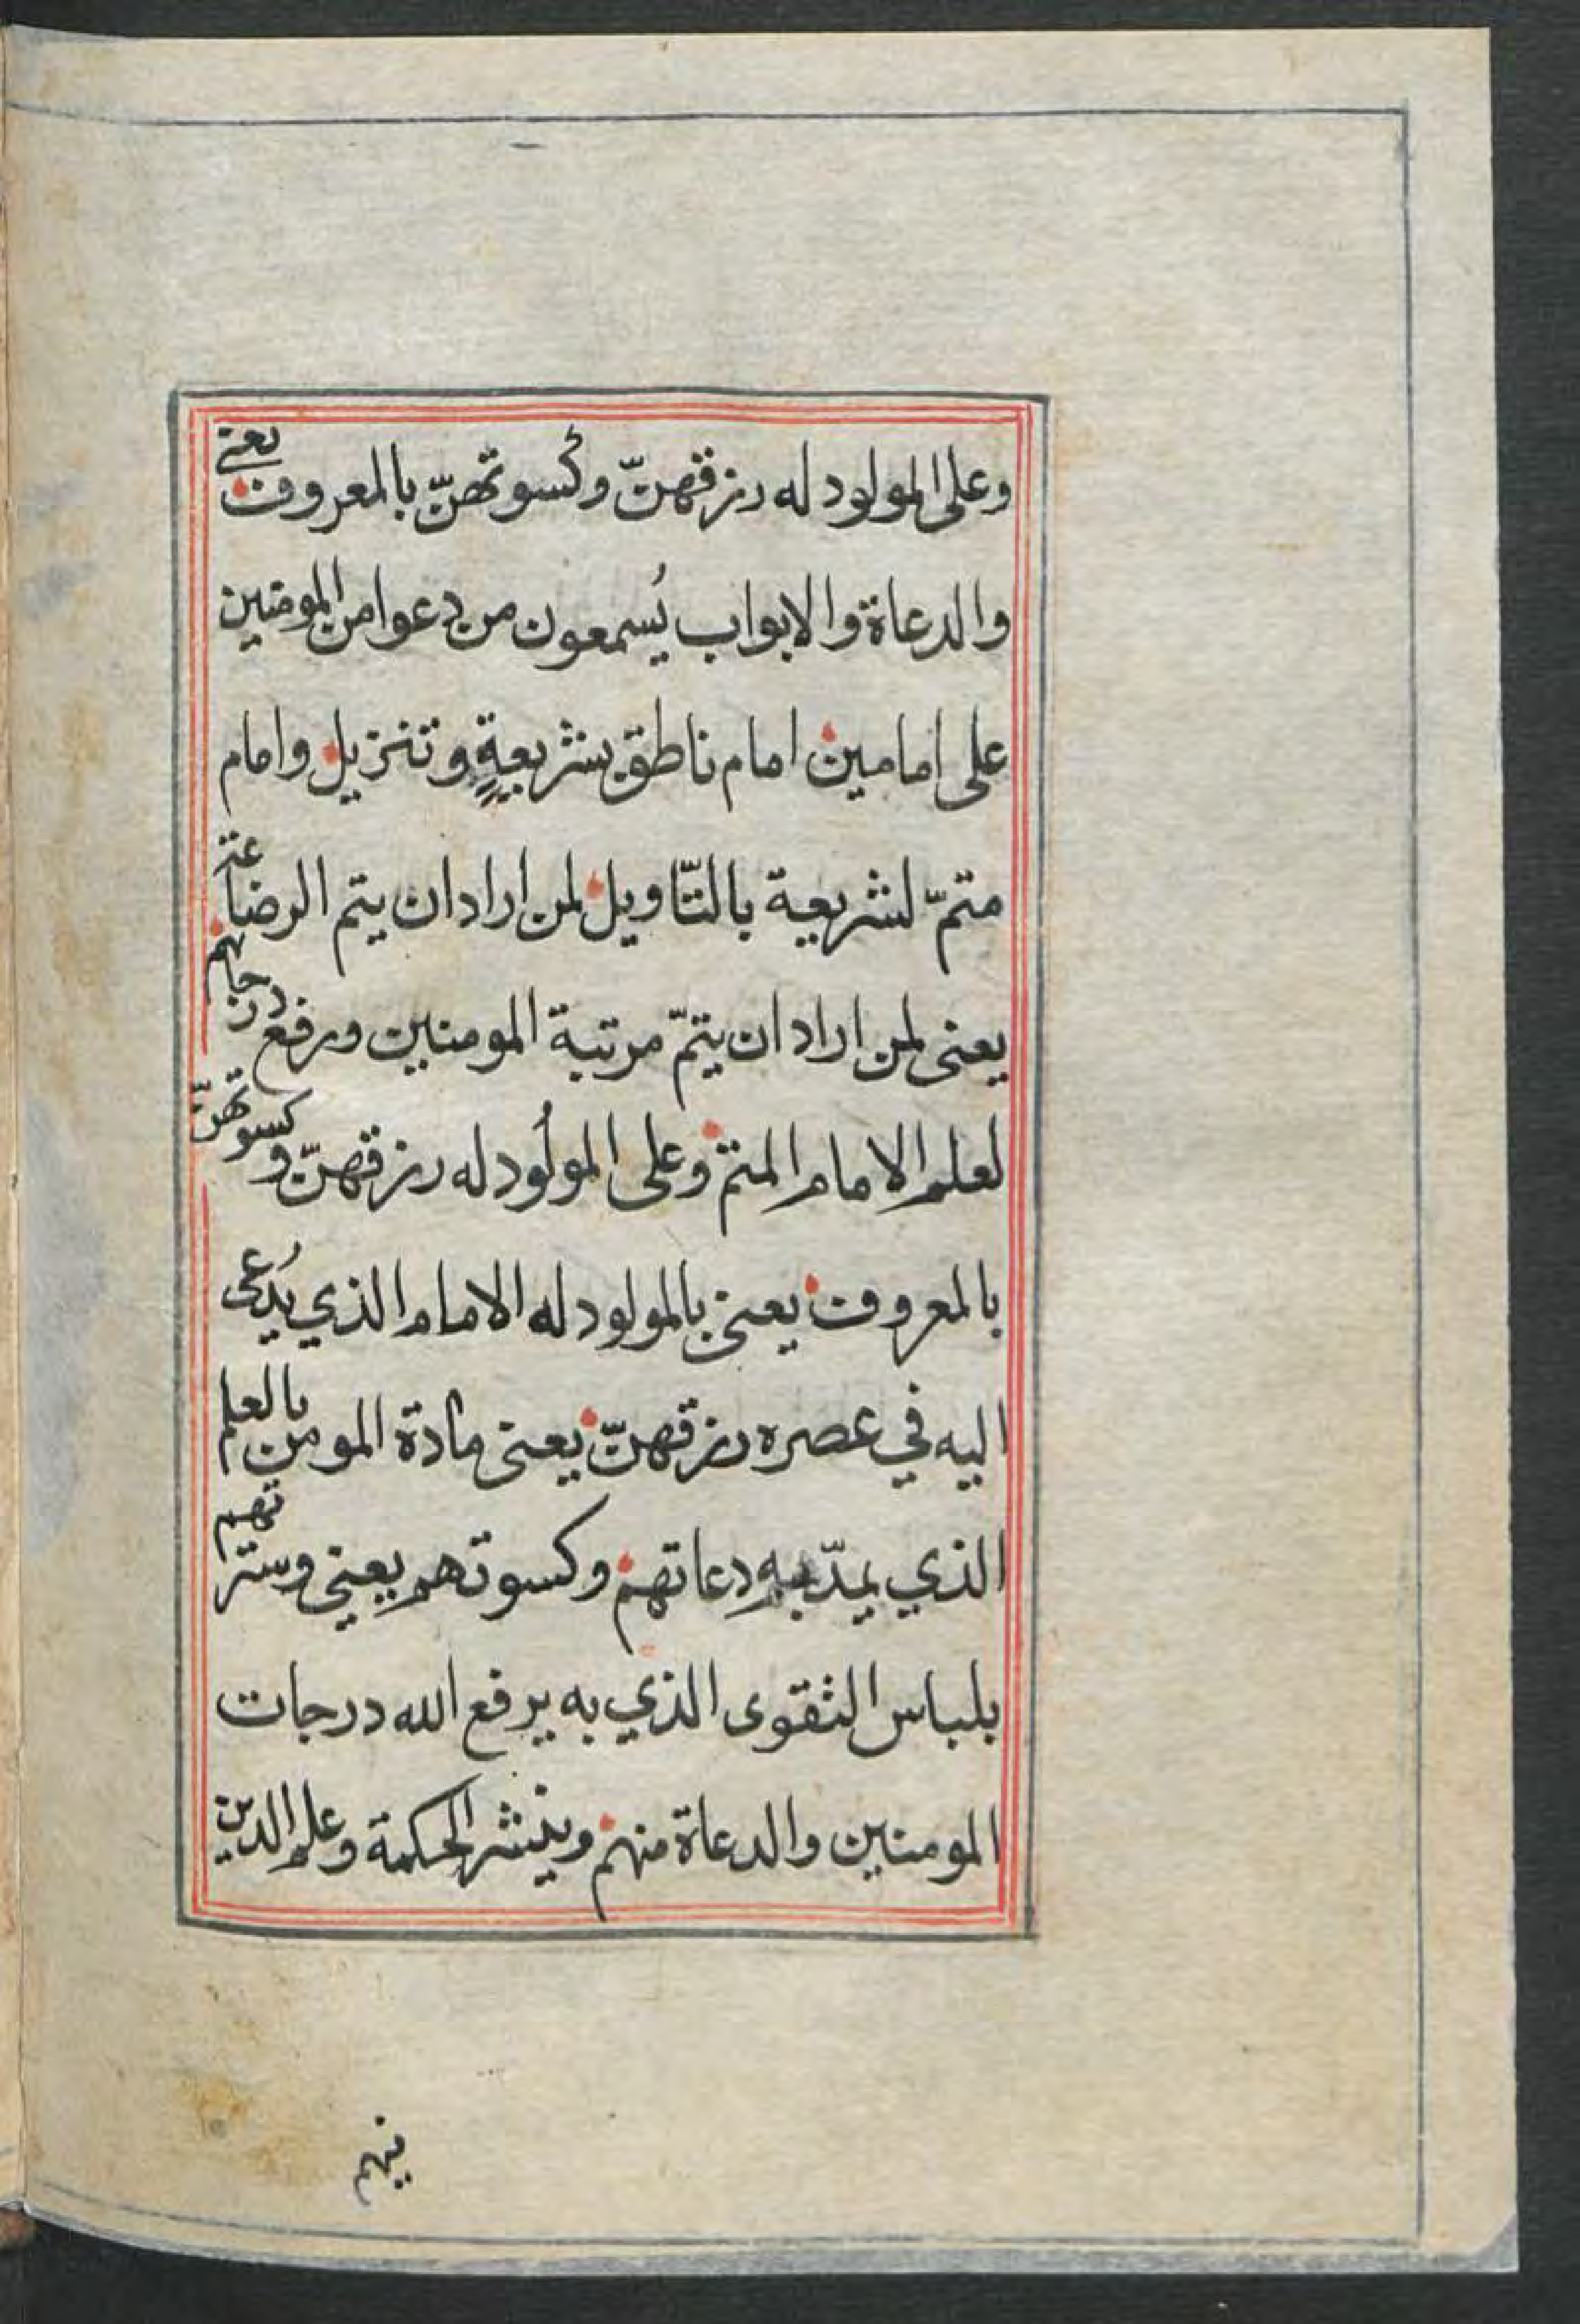 وعلى المولود له رزقهنّ وكسوتهنّ بالمعروف يعني
والدعاة والابواب يُسمعون من دعوا من المومنين
على امامين امام ناطق بشريعةٍ وتنزيل وامام
متمّ لشريعة بالتّاويل لمن اراد ان يتم الرضاعة
يعنى لمن اراد ان يتمّ مرتبة المومنين ورفع درجاتهم
لعلم الامام المتم وعلى المولُود له رزقهنّ وكسوتهنّ
بالمعروف يعنى بالمولود له الامام الذي يُدعى
اليه في عصره رزقهنّ يعنى مادة المومن بالعلم
الذي يمدّ به دعاتهم وكسوتهم يعني وسترتهم
بلباس التقوى الذي به يرفع الله درجات
المومنين والدعاة منهم وينشر الحكمة وعلم الدين
فيهم